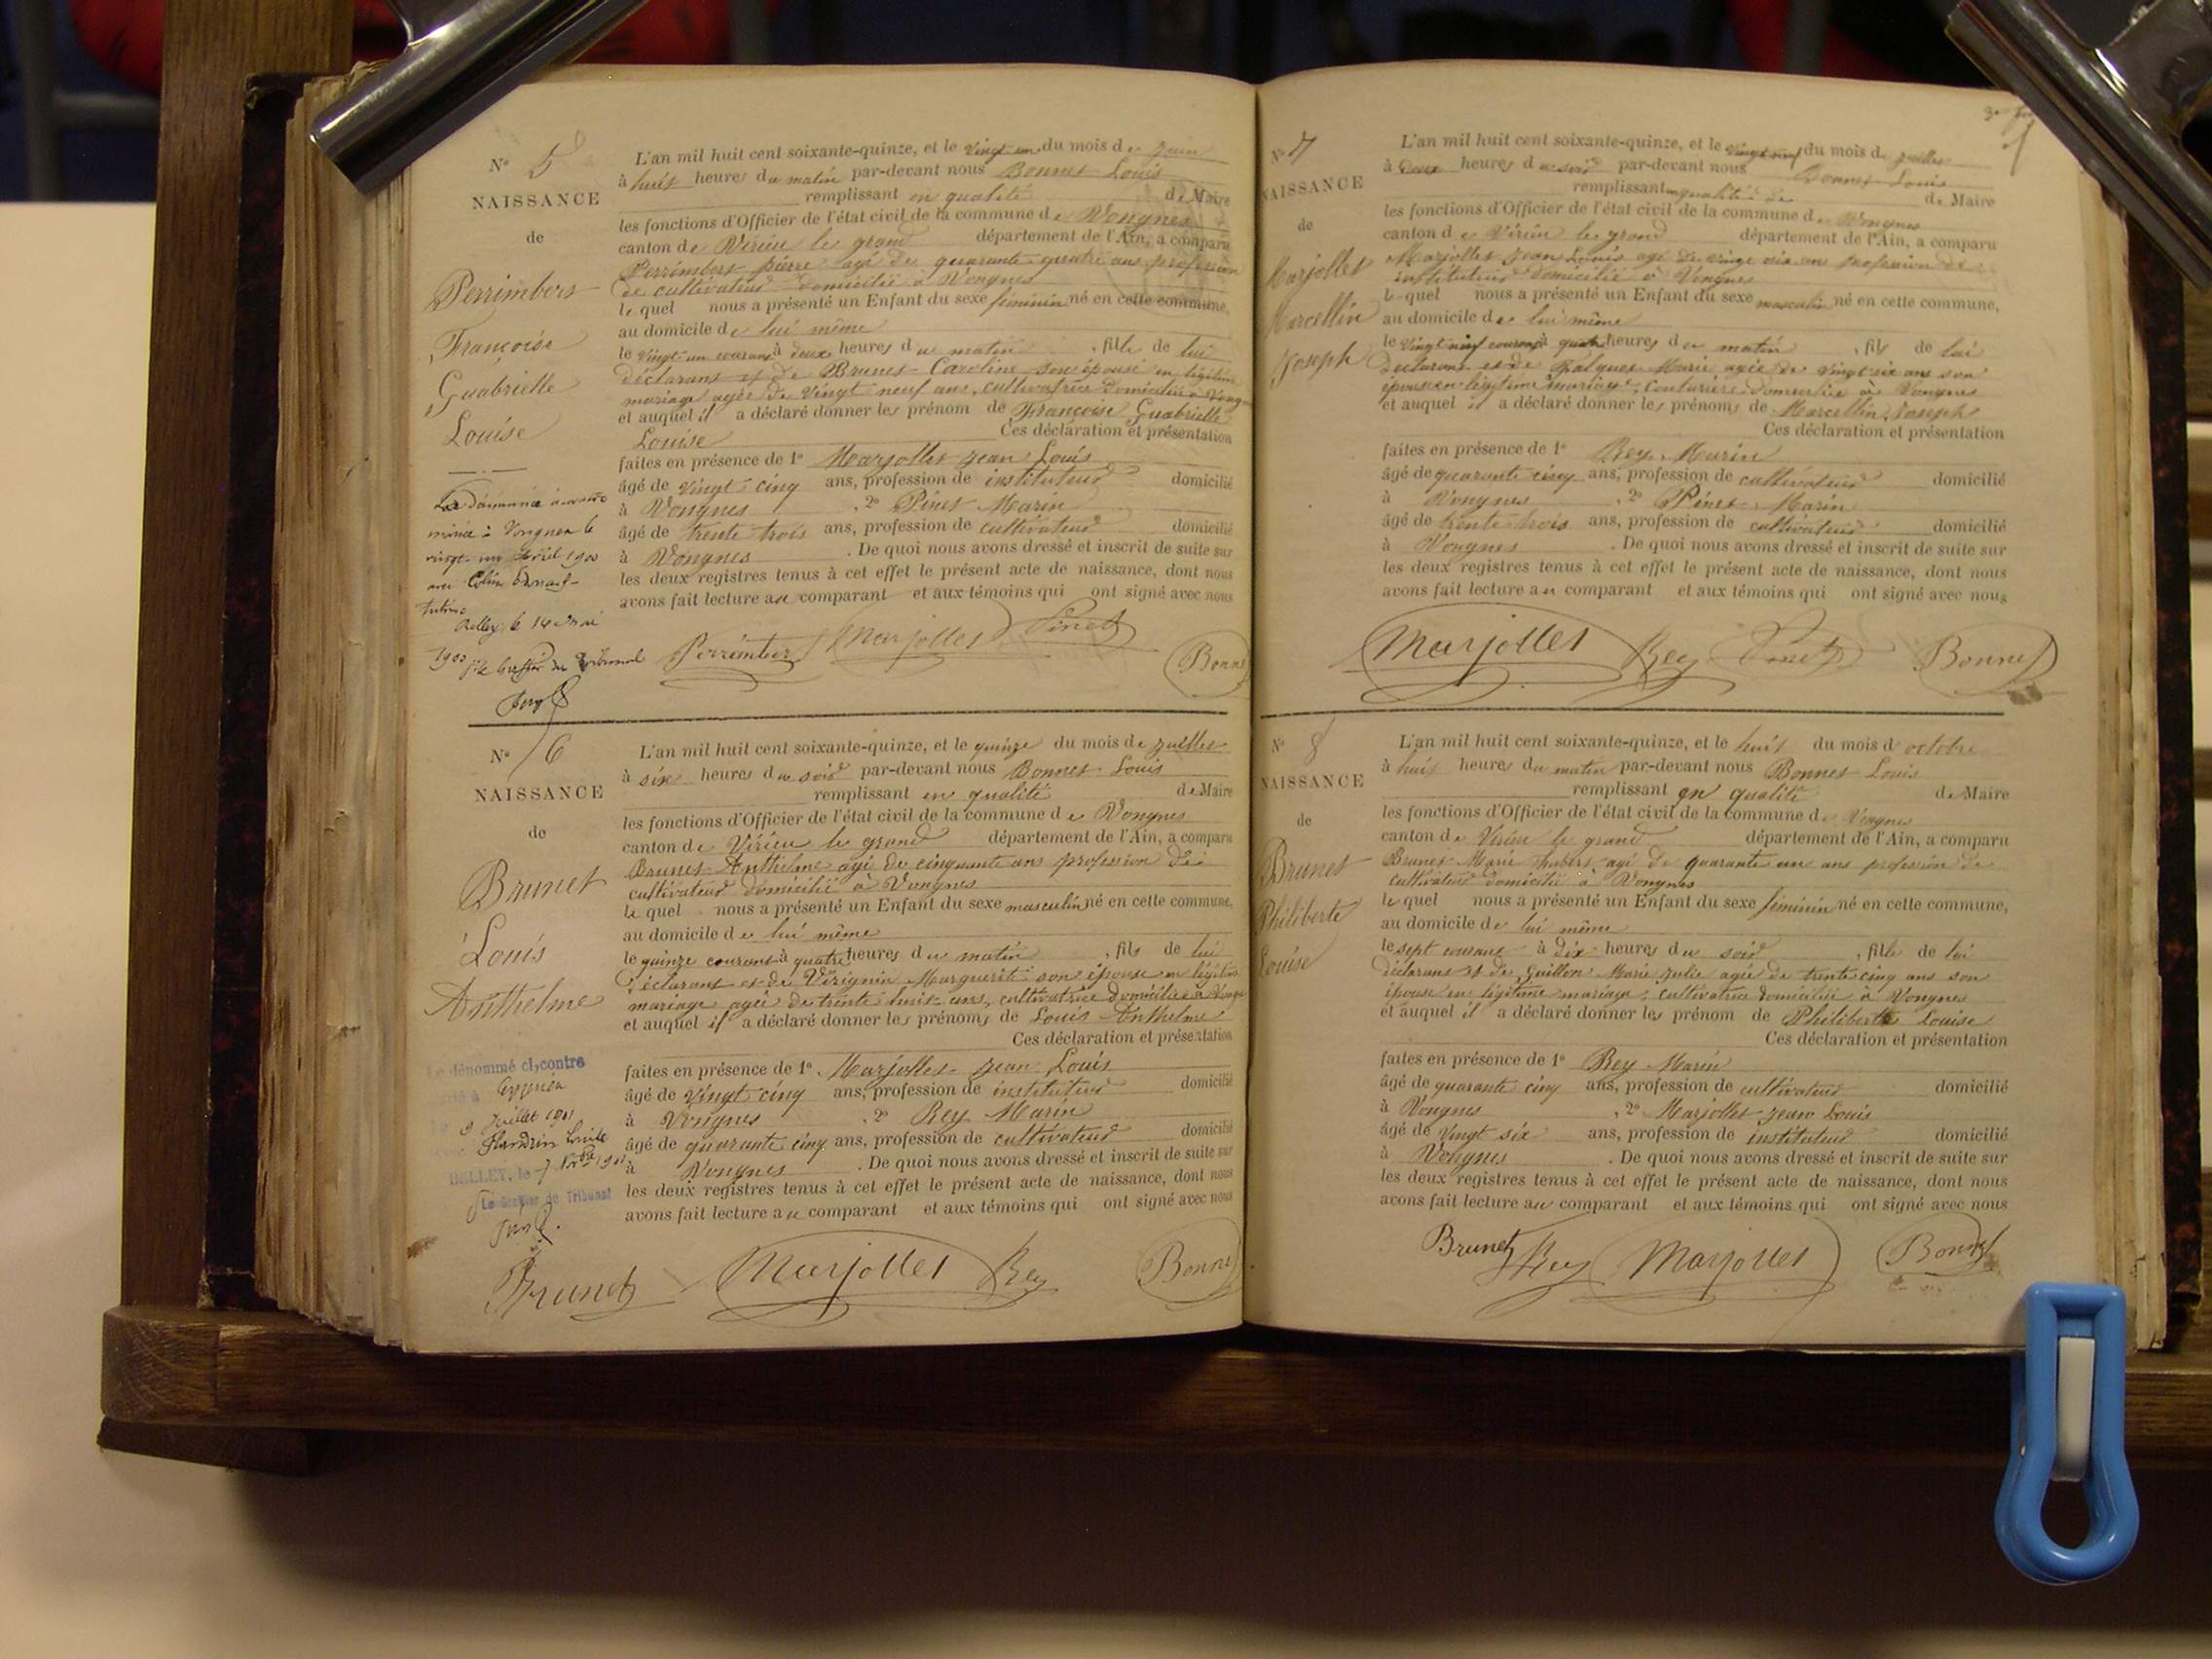 N° 5
NAISSANCE
de
Perrimbert
Françoise
Guabrielle
Louise
La dénommée ci-contre
mariée à Vongnes le
vingt un avril 1900
avec
Belley le 14 mai
1900 P. le Greffier du Tribunal
L'an mil huit cent soixante-quinze, et le vingt un du mois de juin
à huit heures du matin par-devant nous Bonnet Louis
remplissant en qualité de Maire
les fonctions d'Officier de l'état civil de la commune de Vongnes
canton de Virieu le grand département de l'Ain, a comparu
Perrimbert pierre agé de quarante quatre ans profession
de cultivateur domicilié à Vongnes
lequel nous a présenté un Enfant du sexe féminin né en cette commune,
au domicile de lui même
le vingt-un courant à deux heures du matin , fille de lui
déclarant et de Brunet Caroline son épouse en légitime
mariage agée de vingt neuf ans, cultivatrice domiciliée à Vongnes
et auquel il a déclaré donner les prénom de Françoise Guabrielle
Louise Ces déclaration et présentation
faites en présence de 1° Marjollet jean Louis
âgé de vingt-cinq ans, profession de instituteur domicilié
à Vongnes , 2° Pinet Marin
âgé de trente trois ans, profession de cultivateur domicilié
à Vongnes . De quoi nous avons dressé et inscrit de suite sur
les deux registres tenus à cet effet le présent acte de naissance, dont nous
avons fait lecture au comparant et aux témoins qui ont signé avec nous
Perrimbert Marjollet Pinet Bonnet
N° 6
NAISSANCE
de
Brunet
Louis
Anthelme
Le dénommé ci-contre
marié à Ceyzérieu
9 Juillet 1901
Flandrin Louise
BELLEY, le 7 1901
Le Greffier du Tribunal
L'an mil huit cent soixante-quinze, et le quinze du mois de juillet
à six heures du soir par-devant nous Bonnet Louis
remplissant en qualité de Maire
les fonctions d'Officier de l'état civil de la commune de Vongnes
canton de Virieu le grand département de l'Ain, a comparu
Brunet Anthelme agé de cinquante ans profession de
cultivateur domicilié à Vongnes
lequel nous a présenté un Enfant du sexe masculin né en cette commune,
au domicile de lui même
le quinze courant à quatre heures du matin , fils de lui
déclarant et de Virignin Marguerite son épouse en légitime
mariage agée de trente huit ans, cultivatrice domiciliée à Vongnes
et auquel il a déclaré donner les prénoms de Louis Anthelme
Ces déclaration et présentation
faites en présence de 1° Marjollet jean Louis
âgé de vingt cinq ans, profession de instituteur domicilié
à Vongnes , 2° Rey Marin
âgé de quarante cinq ans, profession de cultivateur domicilié
à Vongnes . De quoi nous avons dressé et inscrit de suite sur
les deux registres tenus à cet effet le présent acte de naissance, dont nous
avons fait lecture au comparant et aux témoins qui ont signé avec nous
Brunet Marjollet Rey Bonnet
N° 7
NAISSANCE
de
Marjollet
Marcellin
Joseph
L'an mil huit cent soixante-quinze, et le vingt neuf du mois de juillet
à deux heures du soir par-devant nous Bonnet Louis
remplissant en qualité de de Maire
les fonctions d'Officier de l'état civil de la commune de Vongnes
canton de Virieu le grand département de l'Ain, a comparu
Marjollet jean Louis agé de vingt six ans profession de
instituteur domicilié à Vongnes
lequel nous a présenté un Enfant du sexe masculin né en cette commune,
au domicile de lui même
le vingt neuf courant à quatre heures du matin , fils de lui
déclarant et de Falques Marie agée de vingt six ans son
épouse en légitime mariage, couturière domiciliée à Vongnes
et auquel il a déclaré donner les prénoms de Marcellin Joseph
Ces déclaration et présentation
faites en présence de 1° Rey Marin
âgé de quarante cinq ans, profession de cultivateur domicilié
à Vongnes , 2° Pinet Marin
âgé de trente trois ans, profession de cultivateur domicilié
à Vongnes . De quoi nous avons dressé et inscrit de suite sur
les deux registres tenus à cet effet le présent acte de naissance, dont nous
avons fait lecture au comparant et aux témoins qui ont signé avec nous
Marjollet Rey Pinet Bonnet
N° 8
NAISSANCE
de
Brunet
Philiberte
Louise
L'an mil huit cent soixante-quinze, et le huit du mois d'octobre
à huit heures du matin par-devant nous Bonnet Louis
remplissant en qualité de Maire
les fonctions d'Officier de l'état civil de la commune de Vongnes
canton de Virieu le grand département de l'Ain, a comparu
Brunet Marie Hubert agé de quarante un ans profession de
cultivateur domicilié à Vongnes
lequel nous a présenté un Enfant du sexe féminin né en cette commune,
au domicile de lui même
le sept courant à dix heures du soir , fille de lui
déclarant et de Guillon Marie julie agée de trente cinq ans son
épouse en légitime mariage, cultivatrice domiciliée à Vongnes
et auquel il a déclaré donner les prénom de Philiberte Louise
Ces déclaration et présentation
faites en présence de 1° Rey Marin
âgé de quarante cinq ans, profession de cultivateur domicilié
à Vongnes , 2° Marjollet jean Louis
âgé de vingt six ans, profession de instituteur domicilié
à Vongnes . De quoi nous avons dressé et inscrit de suite sur
les deux registres tenus à cet effet le présent acte de naissance, dont nous
avons fait lecture au comparant et aux témoins qui ont signé avec nous
Brunet Rey Marjollet Bonnet